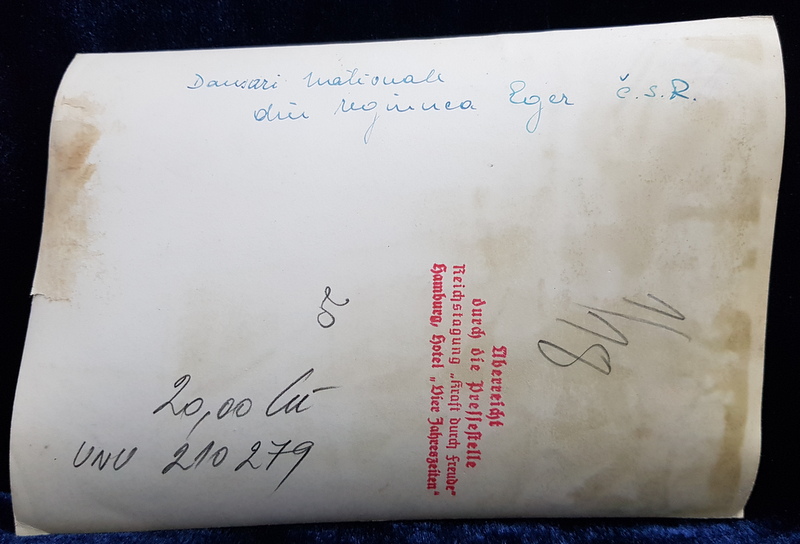 Dansari nationale
din regiunea Eger Č.S.R.
Überreicht
durch die Pressestelle
Reichstagung „Kraft durch Freude“
Hamburg, Hotel „Vier Jahreszeiten“
5
20,00 lei
UNU 210279